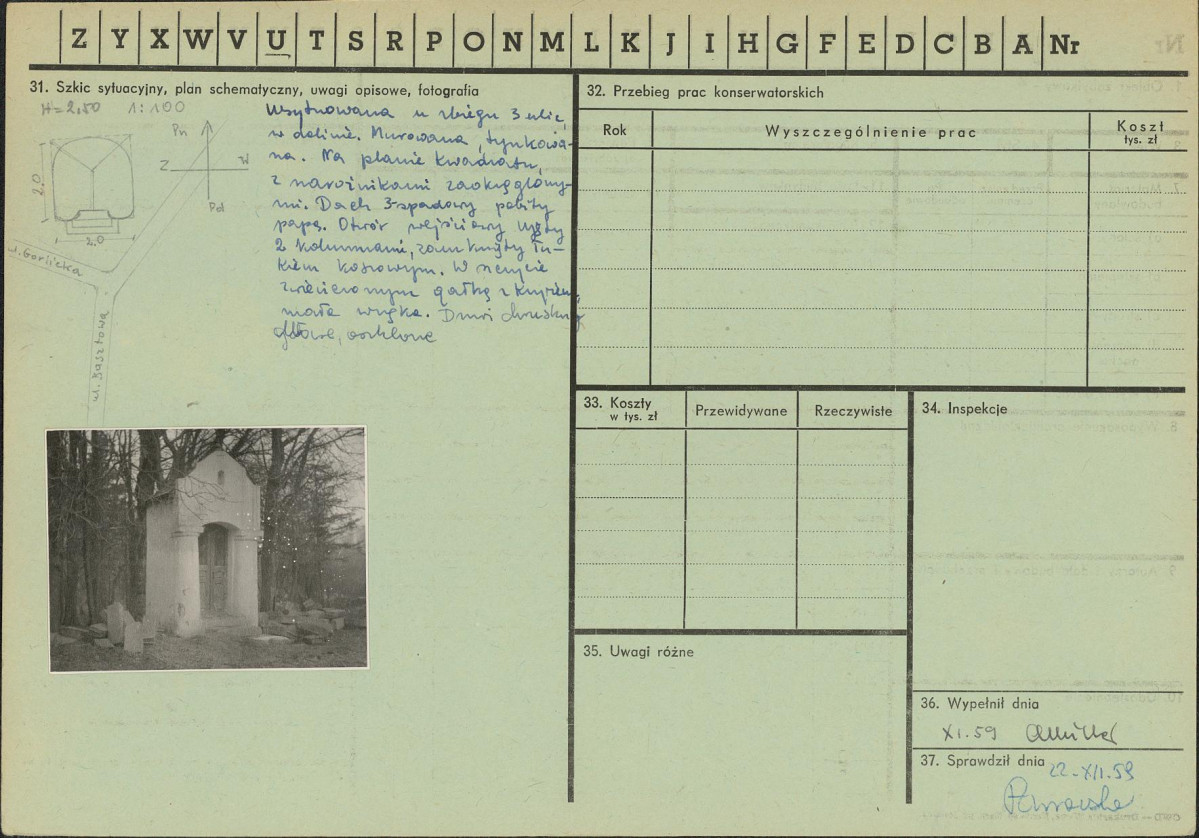 Z Y X W V U T S R P O N M L K J I H G F E D C B A Nr
31. Szkic sytuacyjny, plan schematyczny, uwagi opisowe, fotografia
H=2,50 1:100
Pn
Z W
Pd
2.0
2.0
ul. Gorlicka
ul. Basztowa
Usytuowana u zbiegu 3 ulic,
w dolinie. Murowana, tynkowa-
na. Na planie kwadratu,
z narożnikami zaokrąglony-
mi. Dach 3-spadowy pobity
papą. Otwór wejściowy ujęty
2 kolumnami, zamknięty łu-
kiem koszowym. W szczycie
zwieńczonym gałką z krzyżem,
mała wnęka. Drzwi
32. Przebieg prac konserwatorskich
Rok Wyszczególnienie prac Koszt
tys. zł
33. Koszty
w tys. zł
Przewidywane Rzeczywiste
34. Inspekcje
35. Uwagi różne
36. Wypełnił dnia
XI.59
37. Sprawdził dnia
22-XII.59